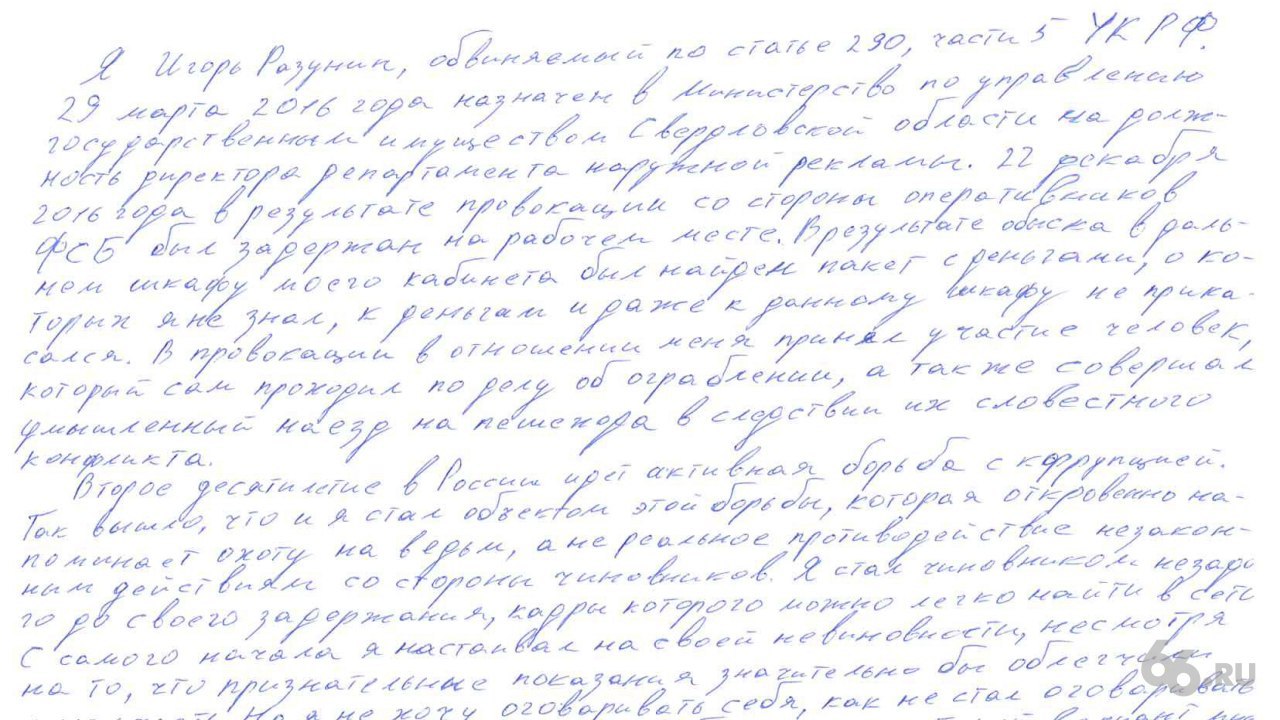 Я Игорь Разунин, обвиняемый по статье 290, части 5 УК РФ.
29 марта 2016 года назначен в Министерство по управлению
государственным имуществом Свердловской области на долж-
ность директора департамента наружной рекламы. 22 декабря
2016 года в результате провокации со стороны оперативников
ФСБ был задержан на рабочем месте. В результате обыска в даль-
нем шкафу моего кабинета был найден пакет с деньгами, о ко-
торых я не знал, к деньгам и даже к данному шкафу не прика-
сался. В провокации в отношении меня принял участие человек,
который сам проходил по делу об ограблении, а также совершал
умышленный наезд на пешехода в следствии их словестного
конфликта.
Второе десятилетие в России идет активная борьба с коррупцией.
Так вышло, что и я стал объектом этой борьбы, которая откровенно на-
поминает охоту на ведьм, а не реальное противодействие незакон-
ным действиям со стороны чиновников. Я стал чиновником незадо
го до своего задержания, кадры которого можно легко найти в сети
С самого начала я настаивал на своей невиновности, несмотря
на то, что признательные показания значительно бы облегчили
Но я не хочу оговоривать себя, как не стал оговоривать
66.RU